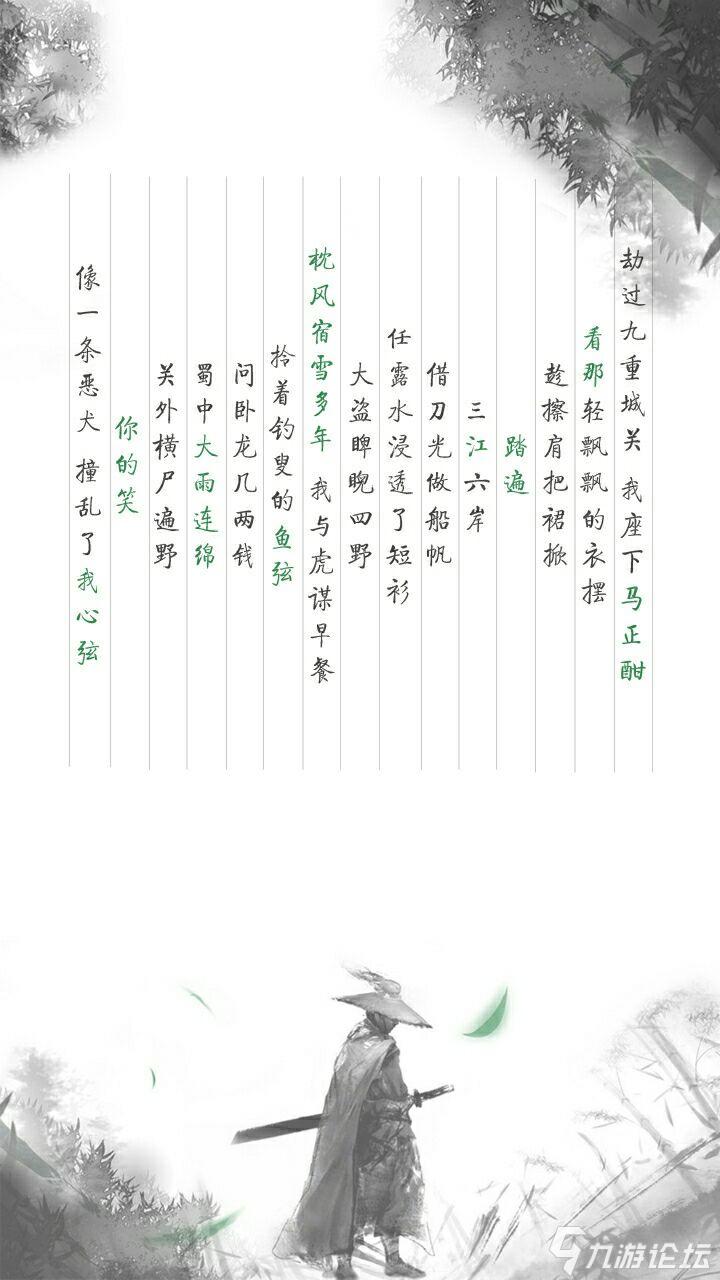 劫过九重城关 我座下马正酣
看那轻飘飘的衣摆
趁擦肩把裙掀
踏遍
三江六岸
借刀光做船帆
任露水浸透了短衫
大盗睥睨四野
枕风宿雪多年 我与虎谋早餐
拾着钓叟的鱼弦
问卧龙几两钱
蜀中大雨连绵
关外横尸遍野
你的笑
像一条恶犬 撞乱了我心弦
九游论坛